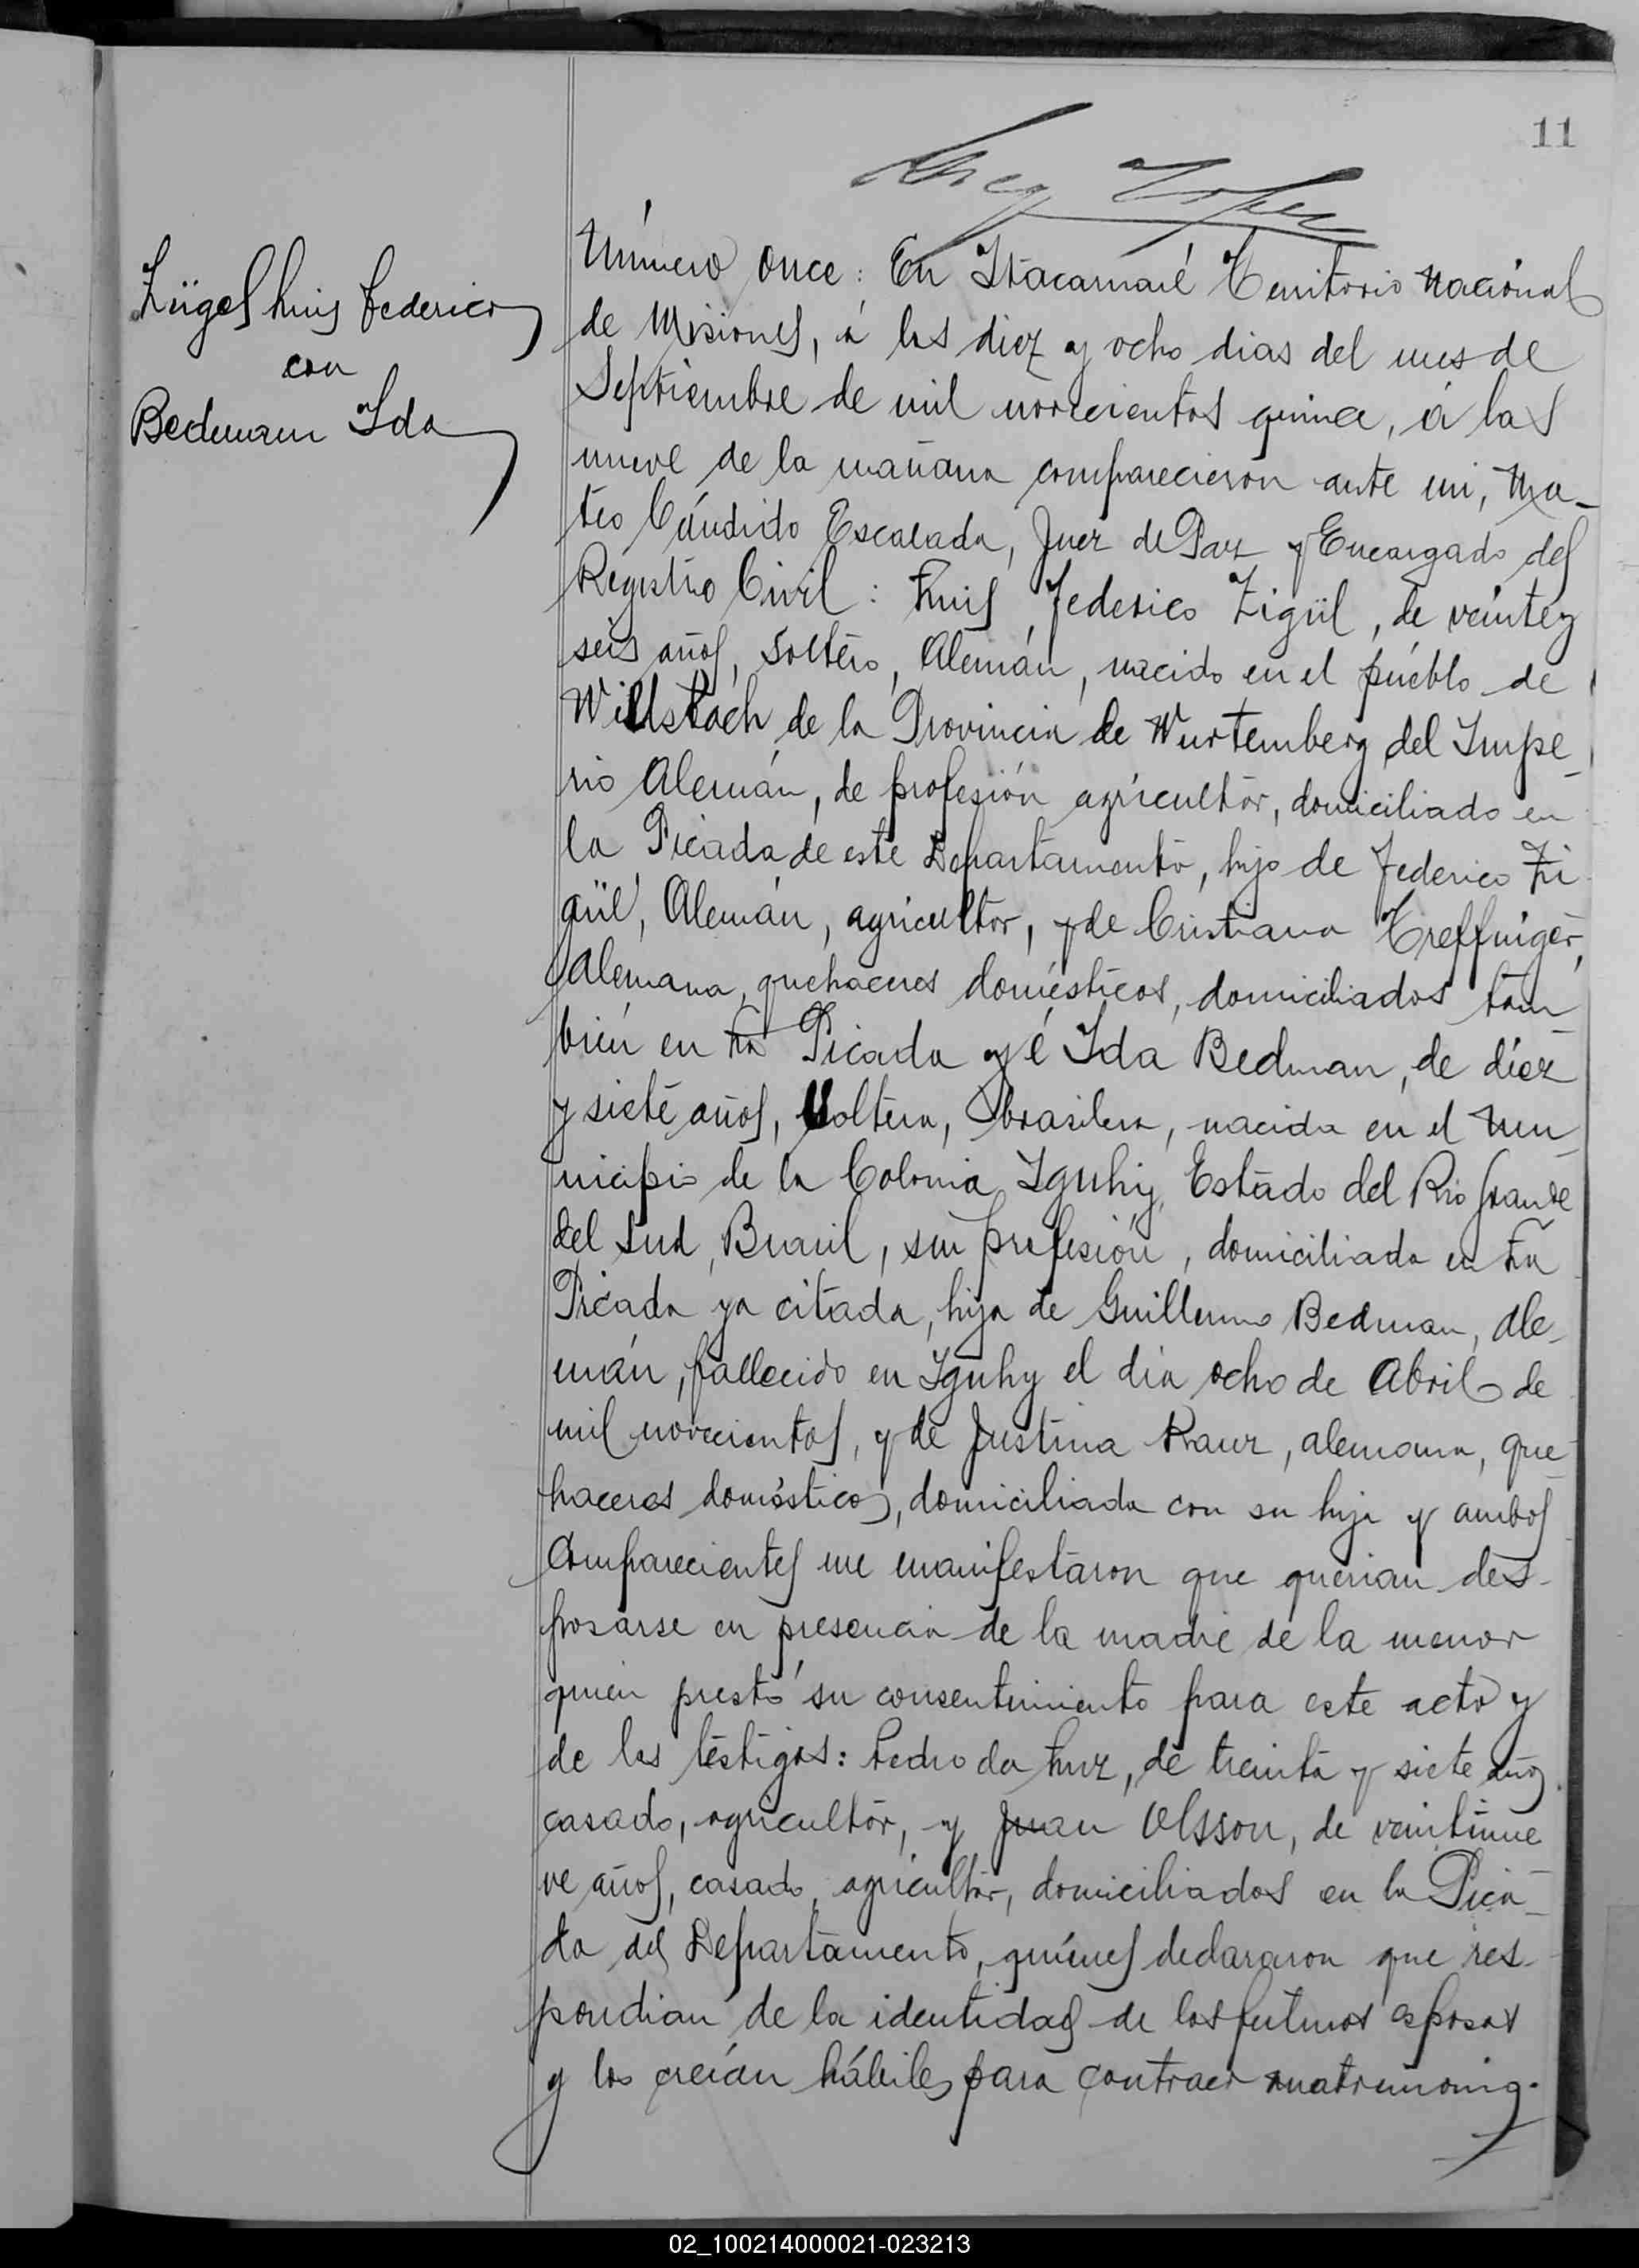 11
Zügel Luis Federico
con
Bedmann Ida
Número Once: En Itacaruaré Territorio Nacional
de Misiones, á los diez y ocho dias del mes de
Septiembre de mil novecientos quince, á las
nueve de la mañana comparecieron ante mi, Ma-
teo Cándido Escalada, Juez de Paz y Encargado del
Registro Civil: Luis Federico Zigül, de veinte y
seis años, soltero, Alemán, nacido en el pueblo de
Willsbach de la Provincia de Wurtemberg del Impe-
rio Alemán, de profesión agricultor, domiciliado en
la Picada de este Departamento, hijo de Federico Zi-
gül, Alemán, agricultor, y de Cristiana Treffinger,
Alemana, quehaceres domésticos, domiciliados tam-
bién en La Picada y é Ida Bedman, de diez
y siete años, soltera, brasilera, nacida en el Mu-
nicipio de la Colonia Iguhy, Estado del Rio Grande
del Sud, Brasil, sin profesión, domiciliada en La
Picada ya citada, hija de Guillermo Bedman, Ale-
mán, fallecido en Iguhy el dia ocho de Abril de
mil novecientos, y de Justina Raur, alemana, que-
haceres domésticos, domiciliada con su hija y ambos
Comparecientes me manifestaron que querian des-
posarse en presencia de la madre de la menor
quien prestó su consentimiento para este acto y
de los testigos: Pedro da Luz, de treinta y siete años
casado, agricultor, y Juan Olsson, de veintinue-
ve años, casado, agricultor, domiciliados en la Pica-
da del Departamento, quiénes declararon que res-
pondian de la identidad de los futuros esposos
y los creían hábiles para contraer matrimonio.
02_100214000021-023213